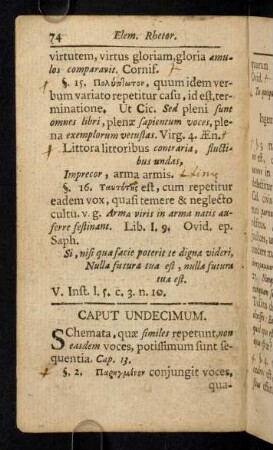 74 Elem. Rhetor.
virtutem, virtus gloriam, gloria æmu-
los comparavit. Cornif.
§. 15. Πολύπτωτον, quum idem ver-
bum variato repetitur casu, id est, ter-
minatione. Ut Cic. Sed pleni sunt
omnes libri, plenæ sapientum voces, ple-
na exemplorum vetustas. Virg. 4. Æn.
Littora littoribus contraria, fluctibus
bus undas,
Imprecor, arma armis.
§. 16. Ταυτότης est, cum repetitur
eadem vox, quasi temere & neglecto
cultu. v. g. Arma viris in arma natis au-
ferre festinant. Lib. I. 9. Ovid. ep.
Saph.
Si, nisi quæ facie poterit te digna videri,
Nulla futura tua est, nulla futura
tua est.
V. Inst. l. 5. c. 3. n. 10.
CAPUT UNDECIMUM.
Schemata, quæ similes repetunt, non
easdem voces, potissimum sunt se-
quentia. Cap. 13.
§. 2. Παρηγμένον conjungit voces,
qua-